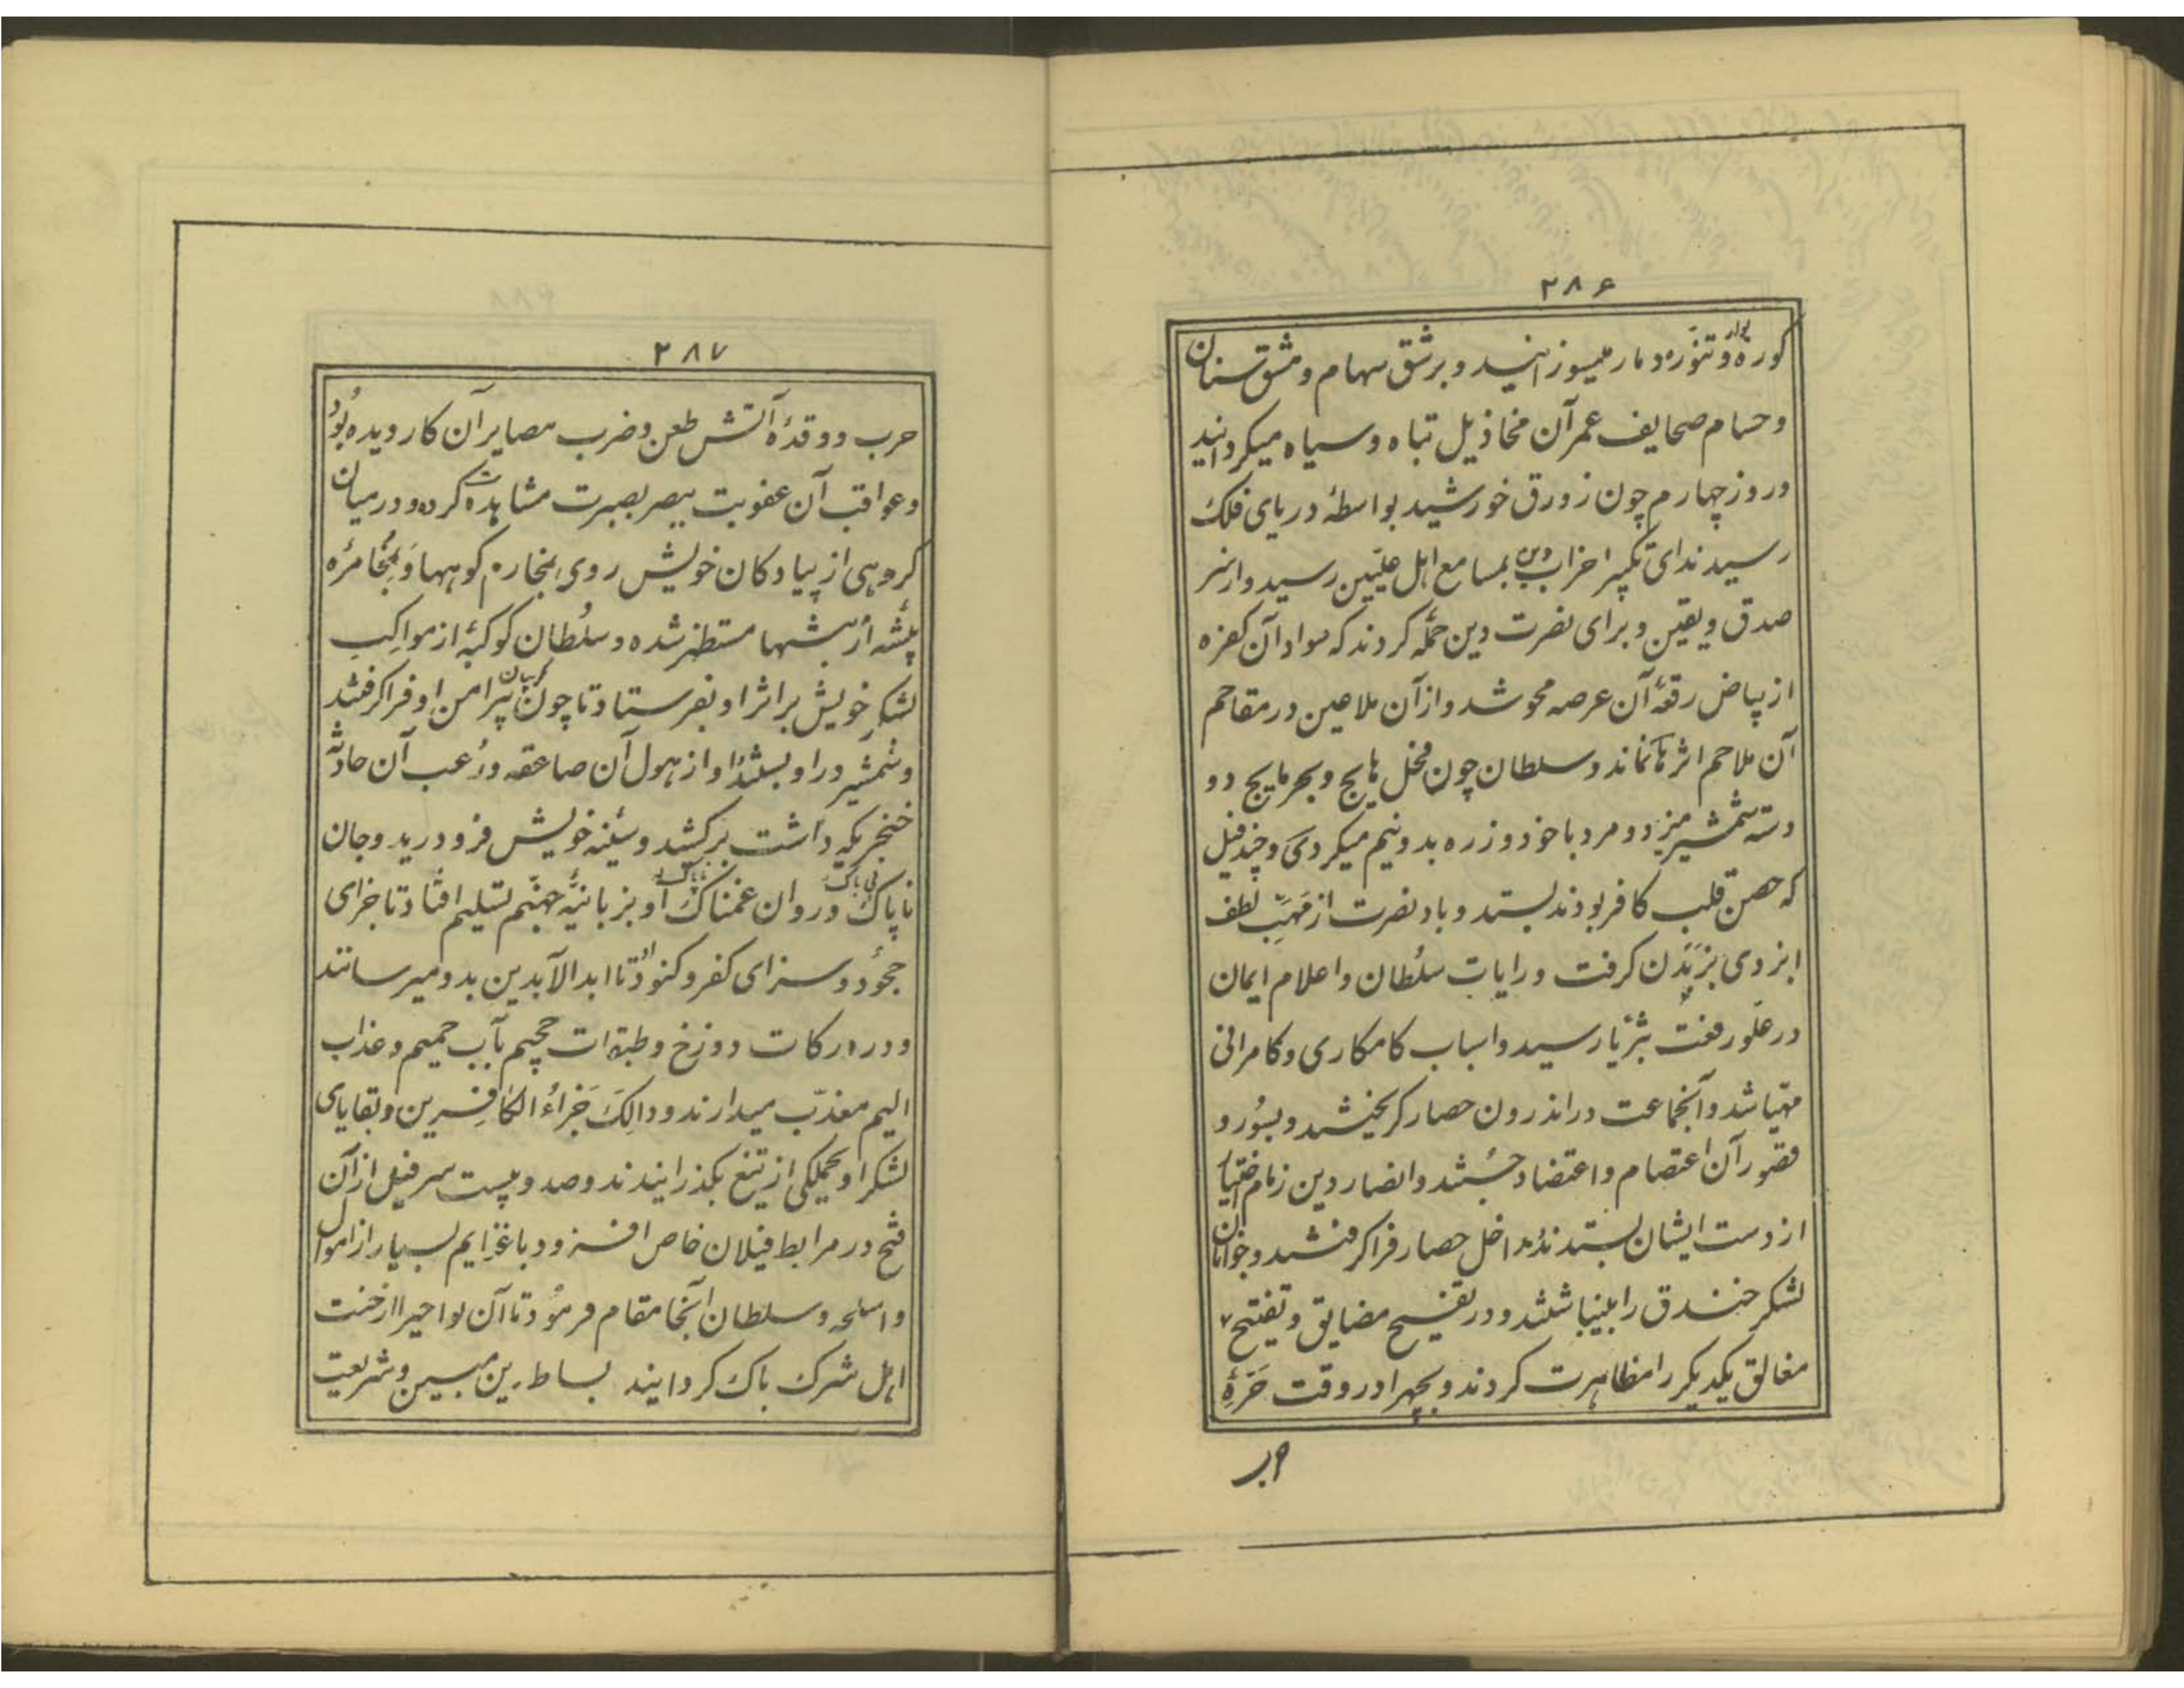 ۲۸۶
کوره بوار و تنوره دمار میسوزانید و برشق سهام و مشق سنان
و حسام صحایف عمر آن مخاذیل تباه و سیاه میکردانید
و روز چهارم چون زورق خورشید بواسطهٔ دریای فلک
رسید ندای تکبیر احزاب دین بمسامع اهل علیین رسید و از سر
صدق و یقین و برای نصرت دین حمله کردند که سواد آن کفره
از بیاض رقعهٔ آن عرصه محو شد و از آن ملاعین در مقاحم
آن ملاحم اثر نماند و سلطان چون فحل هایج و بحر مایج دو
دسته شمشیر میزد و مرد با خود و زره بدو نیم میکردی و چند فیل
که حصن قلب کافر بودند بستد و باد نصرت از مهبّ لطف
ایزدی بزیدن کرفت و رایات سلطان و اعلام ایمان
در علو رفعت بثریا رسید و اسباب کامکاری و کامرانی
مهیا شد و آنجماعت در اندرون حصار کریختند و بسور و
قصور آن اعتصام و اعتضاد جستند و انصار دین زمام اختیار
از دست ایشان بستدند و مداخل حصار فرا کرفتند و جوانان
لشکر خندق را بینباشتند و در تفسیح مضایق و تفتیح
مغالق یکدیکر را مظاهرت کردند و بجهرا در وقت حرّهٔ
حرب
۲۸۷
حرب و وقدهٔ آتش طعن و ضرب مصایر آن کار دیده بود
و عواقب آن عقوبت ببصر بصیرت مشاهدت کرده و در میان
کروهی از پیادکان خویش روی بمخارم کوهها و بمخامرهٔ
بیشه از بیشها مستظهر شده و سلطان کوکبهٔ از مواکب
لشکر خویش بر اثر او بفرستاد تا چون کریبان پیرامن او فرا کرفتند
و شمشیر در او بستند او از هول آن صاعقه و رعب آن حادثه
خنجریکه داشت برکشید و سینهٔ خویش فرو درید و جان
ناپاک و روان غمناک او بزبانیهٔ جهنم تسلیم افتاد تا جزای
جحود و سزای کفر و کنود او تا ابد الآبدین بدو میرسانند
و در درکات دوزخ و طبقات جحیم بآب حمیم و عذاب
الیم معذب میدارند و ذالِکَ جَزاءُ الکافِرین و بقایای
لشکر او بجملکی از تیغ بکذرانیدند و صد و بیست سر فیل از آن
فتح در مرابط فیلان خاص افزود با غنایم بسیار از اموال
و اسلحه و سلطان آنجا مقام فرمود تا آن نواحی را از خبث
اهل شرک باک کردانید بساط دین مبین و شریعت